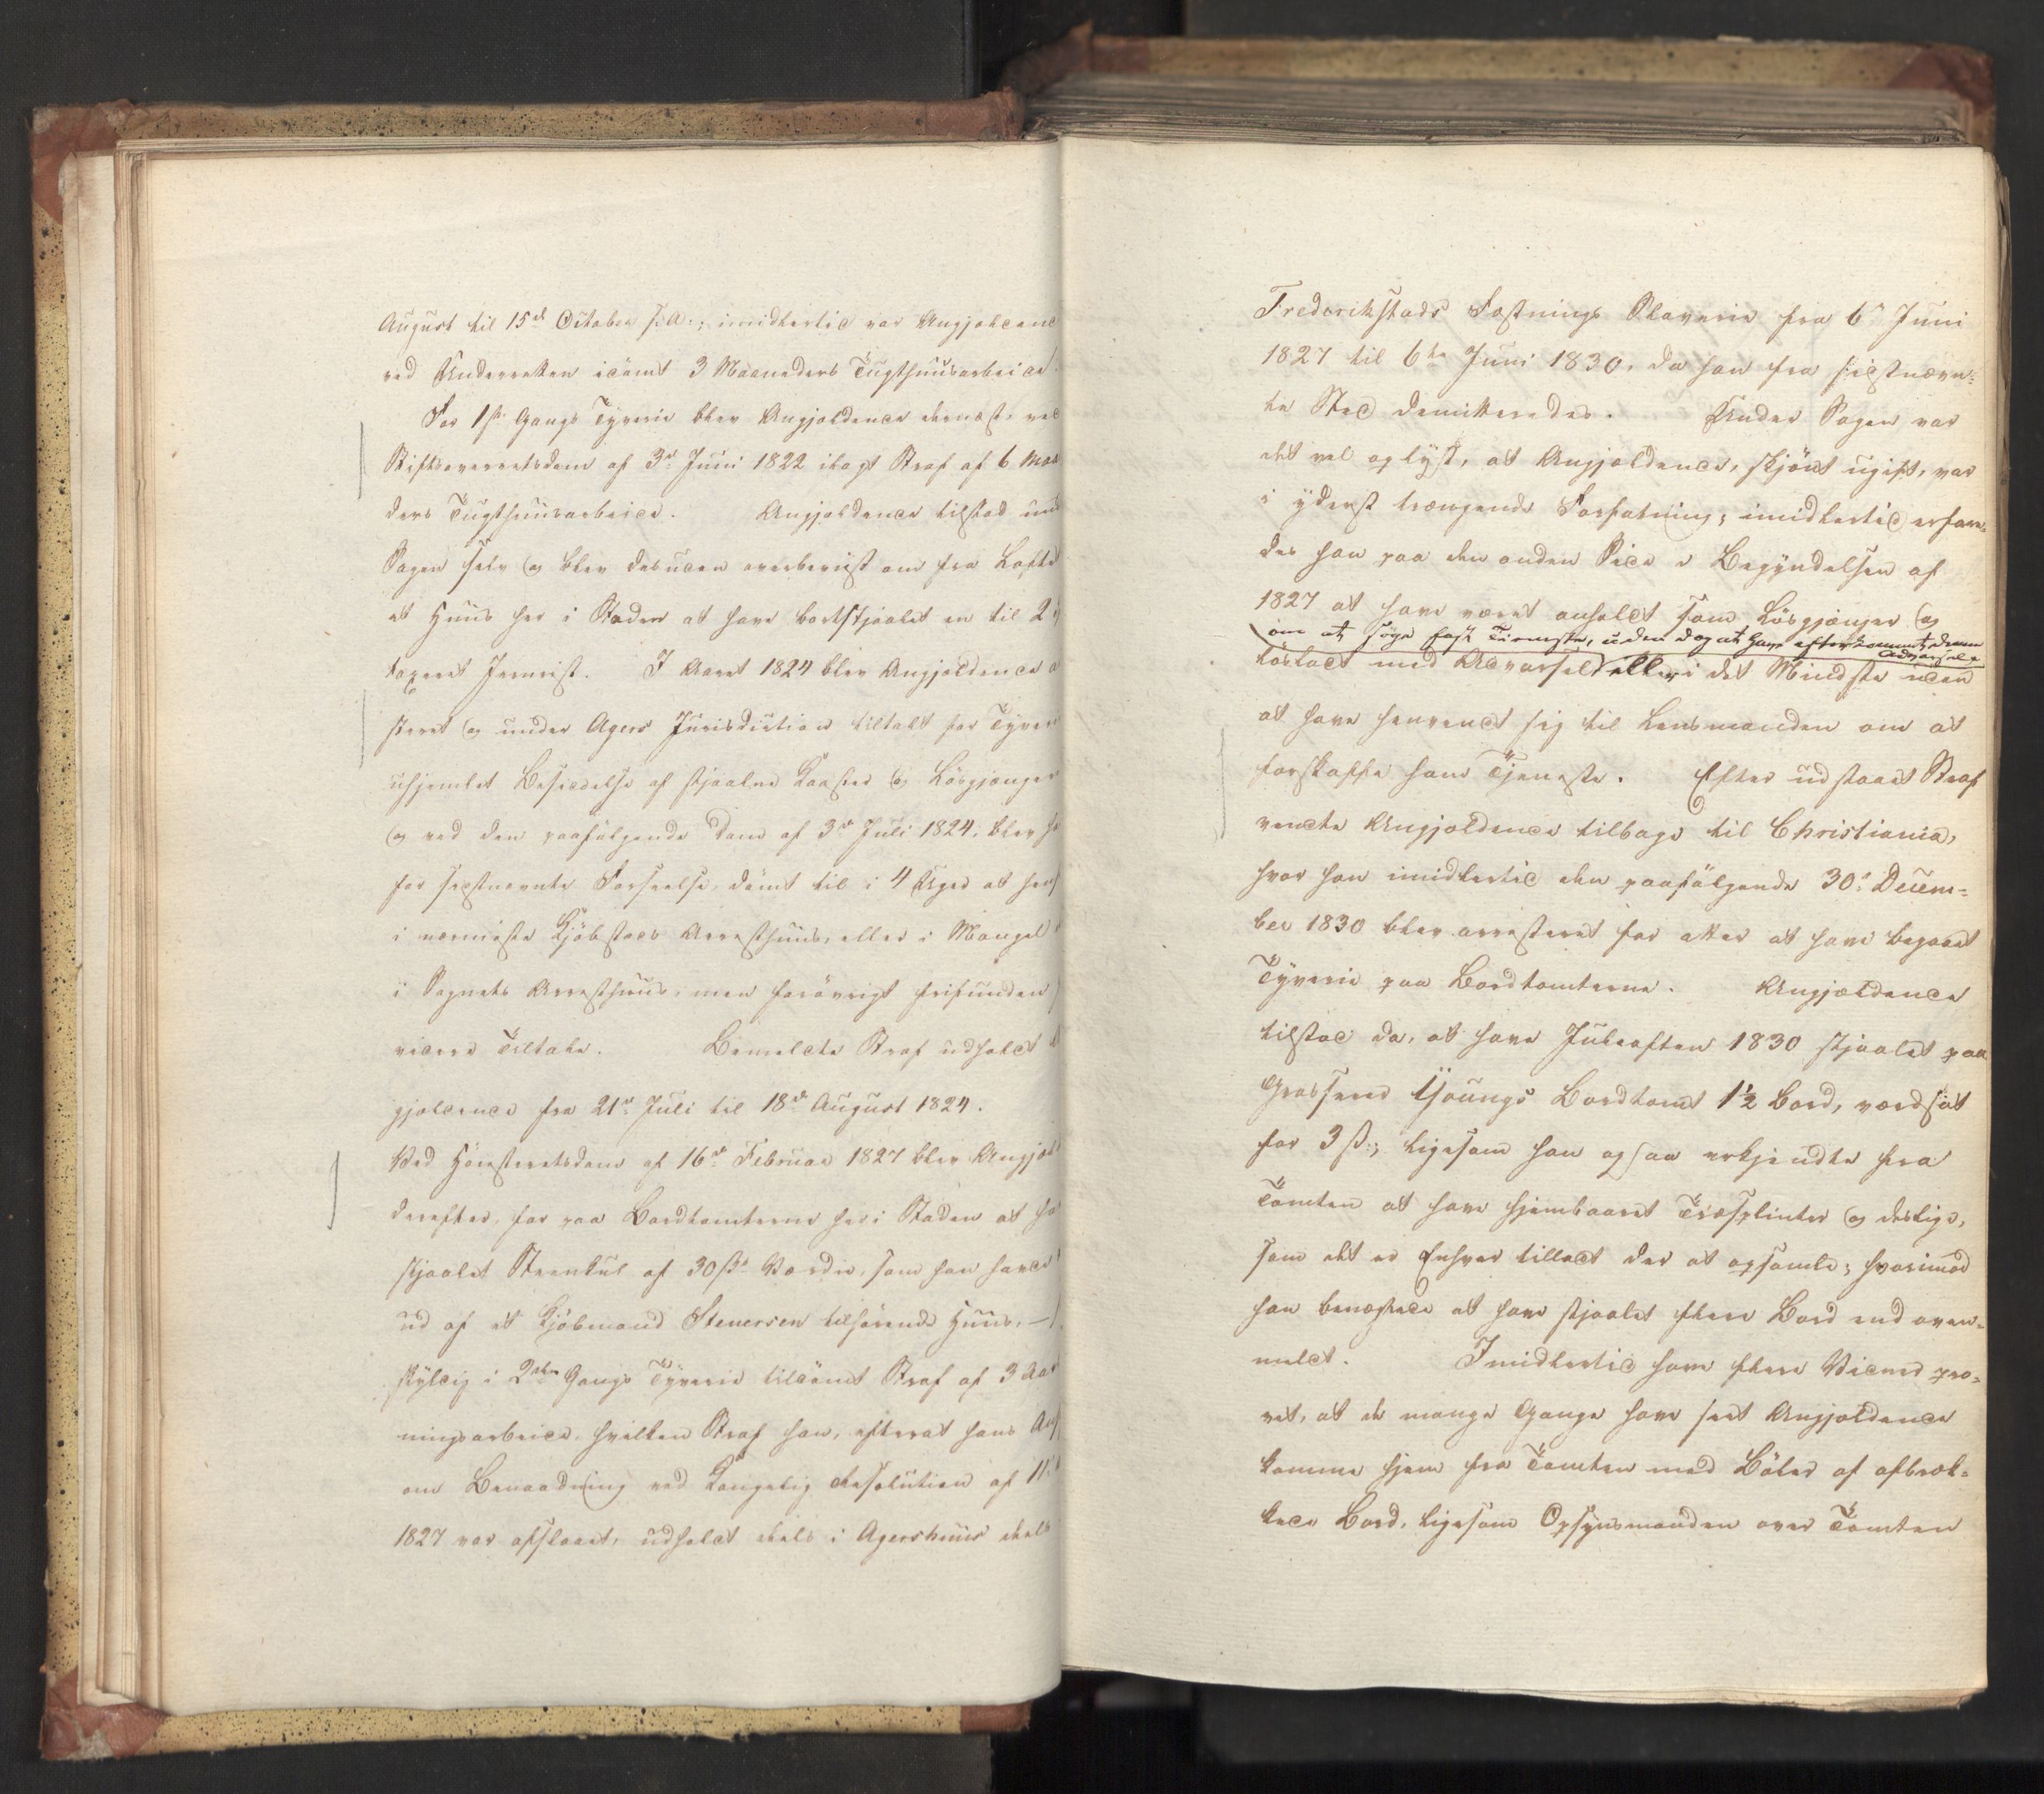 August til 15de October s. A.; imidlertid var Angjældende
ved Underretten idømt 3 Maaneders Tugthuusarbeide.
For 1ste Gangs Tyverie blev Angjældende dernæst, ved
Stiftsoverretsdom af 3de Juni 1822 ilagt Straf af 6 Maa
ders Tugthuusarbeide. Angjældende tilstod und
Sagen selv og blev desuden overbeviist om fra Loftet
et Huus her i Staden at have bortstjaalet en til 2
taxeret Jernrist. I Aaret 1824 blev Angjældende a
steret og under Agers Jurisdiction tiltalt for Tyveri
uhjemlet Besiddelse af stjaalne Kaaster og Løsgjænger
og ved den paafølgende Dom af 3de Juli 1824, blev ha
for sidstnævnte Forseelse, dømt til i 4 Uger at hens
i nærmeste Kjøbstads Arresthuus, eller i Mangel
i Sognets Arresthuus, men forøvrigt frifunden
videre Tiltale. Bemeldte Straf udholdt
gjældende fra 21de Juli til 18de August 1824.
Ved Høiesteretsdom af 16de Februar 1827 blev Angjæl
derefter, for paa Bordtomterne her i Staden at ha
stjaalet Steenkul af 30 ß Værdie, som han havde
ud af et Kjøbmand Stenersen tilhørende Huus, —
skyldig i 2den Gangs Tyverie tildømt Straf af 3 Aar
ningsarbeide, hvilken Straf han, efterat hans Ans
om Benaadning ved Kongelig Resolution af 11
1827 var afslaaet, udholdt deels i Agershuus deels
Frederikstads Fæstnings Slaverie fra 6te Juni
1827 til 6te Juni 1830, da han fra sidstnævn-
te Sted demitteredes. Under Sagen var
det vel oplyst, at Angjældende, skjönt ugift, var
i yderst trængende Forfatning; imidlertid erfare-
des han paa den anden Side i Begyndelsen af
1827 at have været anholdt som Lösgjænger og
om at søge fast Tieneste, uden dog at have efterkommet denne
Advarsel
løsladt med Advarsel eller i det Mindste uden
at have henvendt sig til Lensmanden om at
forskaffe ham Tjeneste. Efter udstaaet Straf
vendte Angjældende tilbage til Christiania,
hvor han imidlertid den paafølgende 30te Decem-
ber 1830 blev arresteret for atter at have begaaet
Tyverie paa Bordtomterne. Angjældende
tilstod da, at have Juleaften 1830 stjaalet paa
Grosserer Youngs Bordtomt 1½ Bord, værdsat
for 3 ß; ligesom han ogsaa erkjendte fra
Tomten at have hjembaaret Træsplinter og deslige,
som det er Enhver tilladt der at opsamle; hvorimod
han benægtede at have stjaalet flere Bord end oven-
meldt. Imidlertid have flere Vidner pro-
vet, at de mange Gange have seet Angjældende
komme hjem fra Tomten med Böler af afbræk-
kede Bord, ligesom Opsynsmanden over Tomten